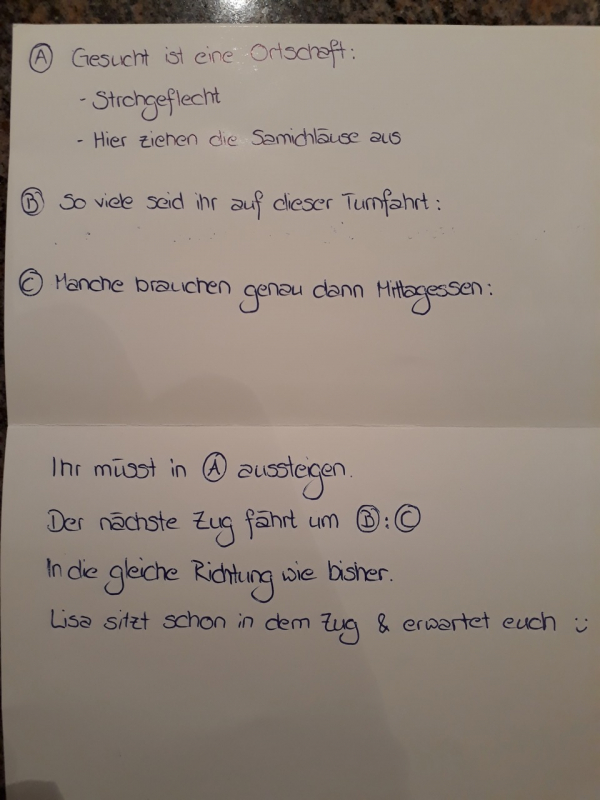 Ⓐ Gesucht ist eine Ortschaft:
- Strohgeflecht
- Hier ziehen die Samichläuse aus
Ⓑ So viele seid ihr auf dieser Turnfahrt:
Ⓒ Manche brauchen genau dann Mittagessen:
Ihr müsst in Ⓐ aussteigen.
Der nächste Zug fährt um Ⓑ:Ⓒ
In die gleiche Richtung wie bisher.
Lisa sitzt schon in dem Zug & erwartet euch :)